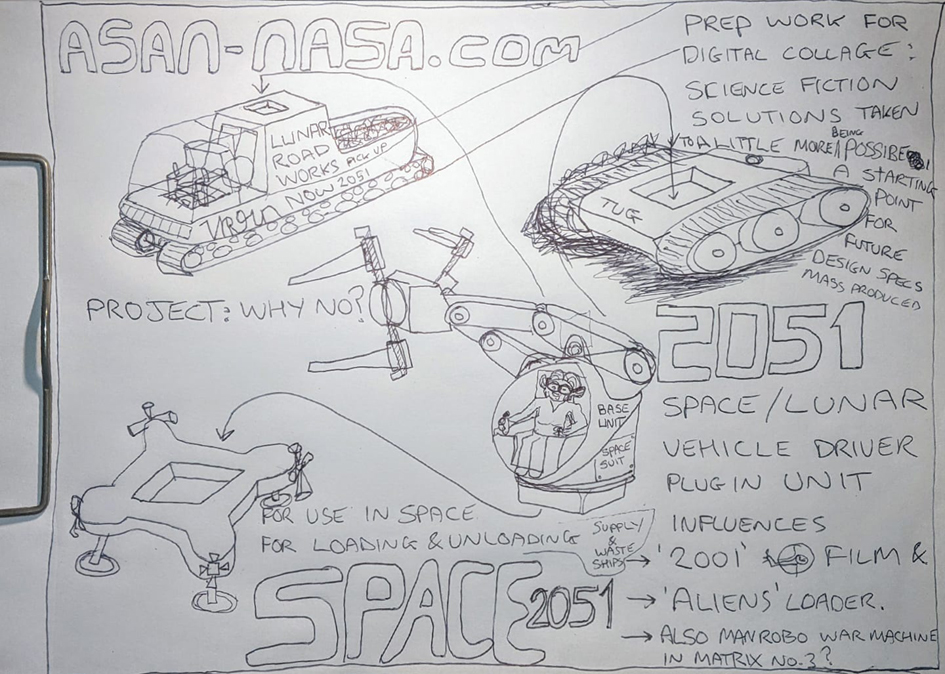 ASAN-NASA.COM
PREP WORK FOR
DIGITAL COLLAGE:
SCIENCE FICTION
SOLUTIONS TAKEN
TO A LITTLE MORE BEING POSSIBE
A STARTING
POINT
FOR
FUTURE
DESIGN SPECS
MASS PRODUCED
LUNAR
ROAD
WORKS PICK UP
NOW 2051
VIRGIN
TUG
PROJECT: WHY NO?
2051
BASE
UNIT
SPACE
SUIT
SPACE/LUNAR
VEHICLE DRIVER
PLUGIN UNIT
FOR USE IN SPACE
FOR LOADING & UNLOADING
SUPPLY
&
WASTE
SHIPS
INFLUENCES
→ '2001' FILM &
→ 'ALIENS' LOADER.
→ ALSO MANROBO WAR MACHINE
IN MATRIX NO.3?
SPACE 2051